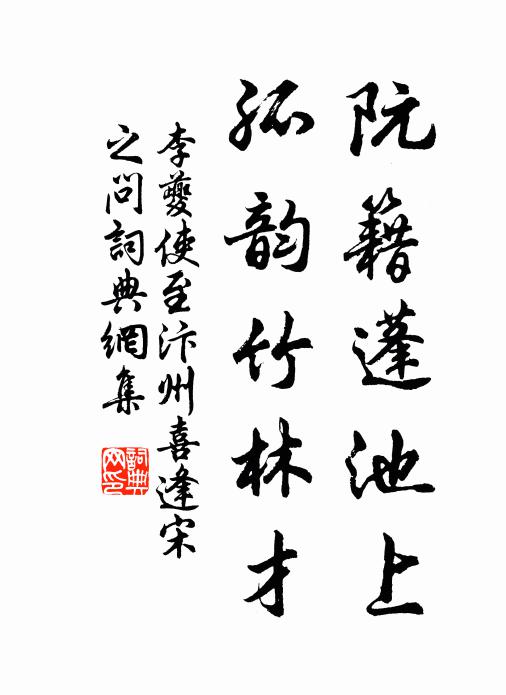 阮籍蓬池上
孤韵竹林才
李夔使至汴州喜逢宋
之问詞典網集
詞典
网印